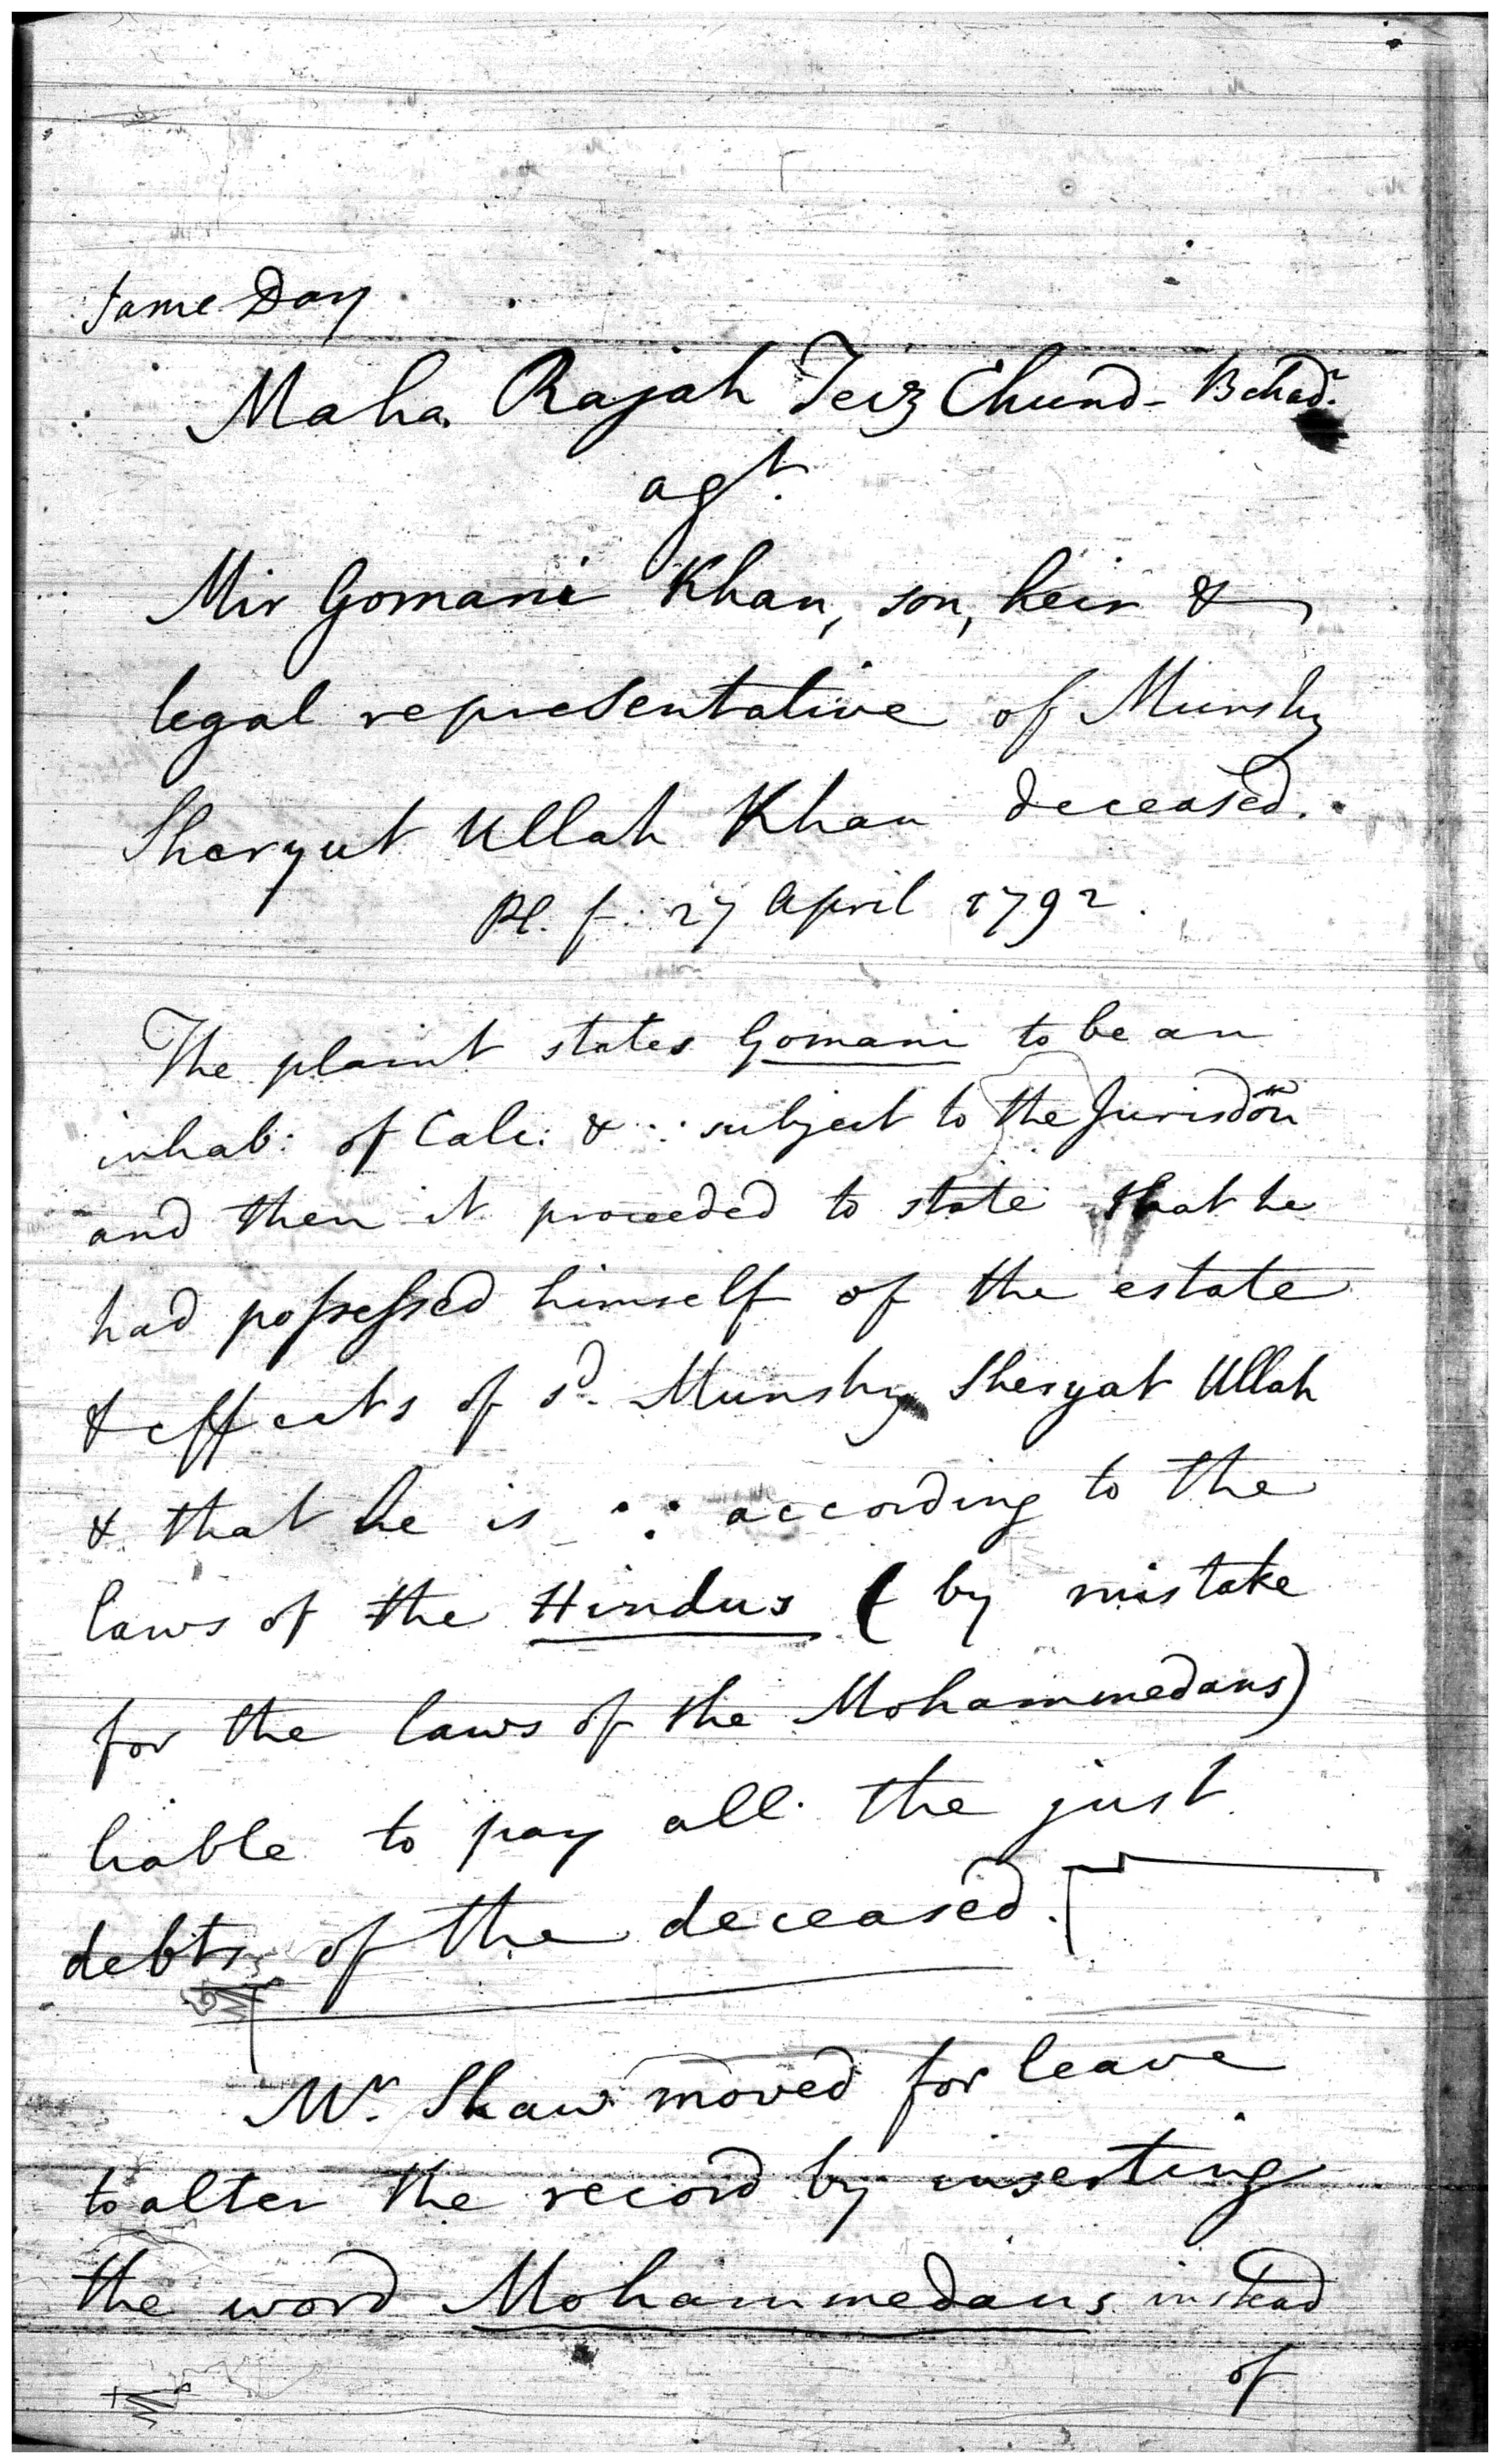 Same Day
Maha Rajah Teiz Chund - Behad.r
agt.
Mir Gomani Khan, son, heir &
legal representative of Munshy
Sheryut Ullah Khan deceased.
Pl. f. 27 April 1792.
The plaint states Gomani to be an
inhab: of Calc: & ∴ subject to the Jurisdōn
and then it proceeded to state that he
had possessed himself of the estate
& effects of sd. Munshy Sheryat Ullah
& that he is ∵ according to the
laws of the Hindus ( by mistake
for the laws of the Mohammedans)
liable to pay all the just
debts of the deceased.
Mr. Shaw moved for leave
to alter the record by inserting
the word Mohammedans instead
of